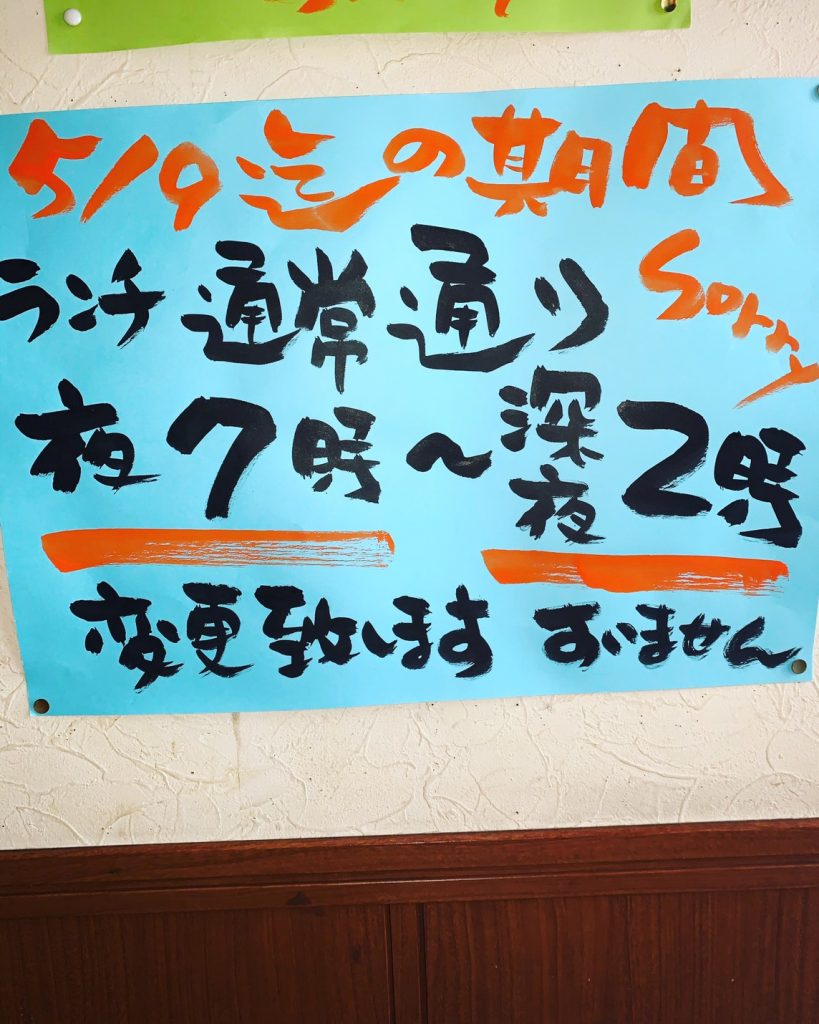 5/9迄の期間
ランチ通常通り
Sorry
夜7時〜深夜2時
変更致します すいません